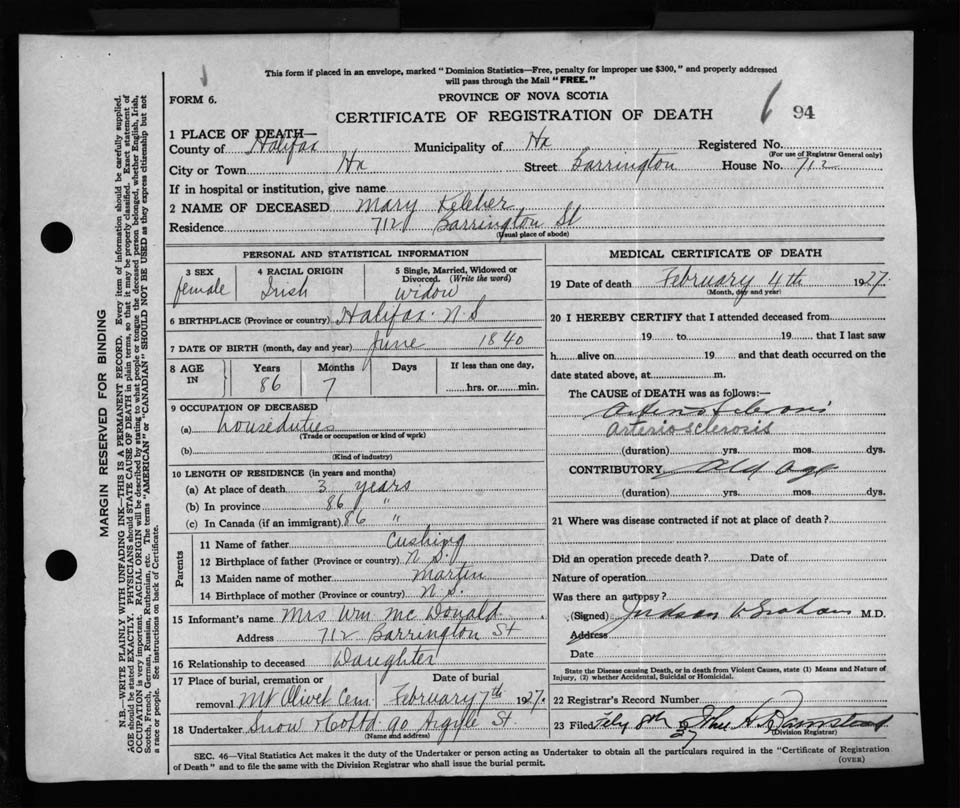 This form if placed in an envelope, marked "Dominion Statistics—Free, penalty for improper use $300," and properly addressed
will pass through the Mail "FREE."
FORM 6.
PROVINCE OF NOVA SCOTIA
CERTIFICATE OF REGISTRATION OF DEATH
94
1 PLACE OF DEATH—
County of Halifax Municipality of Hx Registered No.
(For use of Registrar General only)
City or Town Hx Street Barrington House No. 712
If in hospital or institution, give name
2 NAME OF DECEASED Mary Keleher
Residence 712 Barrington St
(Usual place of abode)
PERSONAL AND STATISTICAL INFORMATION
3 SEX 4 RACIAL ORIGIN 5 Single, Married, Widowed or
Divorced. (Write the word)
female Irish Widow
6 BIRTHPLACE (Province or country) Halifax N.S
7 DATE OF BIRTH (month, day and year) June 1840
8 AGE IN Years Months Days If less than one day,
86 7 hrs. or min.
9 OCCUPATION OF DECEASED
(a) houseduties
(Trade or occupation or kind of work)
(b)
(Kind of industry)
10 LENGTH OF RESIDENCE (in years and months)
(a) At place of death 3 years
(b) In province 86 "
(c) In Canada (if an immigrant) 86 "
Parents
11 Name of father Cushing
12 Birthplace of father (Province or country) N.S.
13 Maiden name of mother Martin
14 Birthplace of mother (Province or country) N.S.
15 Informant's name Mrs Wm McDonald
Address 712 Barrington St
16 Relationship to deceased Daughter
17 Place of burial, cremation or Date of burial
removal Mt Olivet Cem. February 7th 1927.
18 Undertaker Snow & Co Ltd 90 Argyle St
(Name and address)
MEDICAL CERTIFICATE OF DEATH
19 Date of death February 4th 1927.
(Month, day and year)
20 I HEREBY CERTIFY that I attended deceased from
19 to 19 that I last saw
h alive on 19 and that death occurred on the
date stated above, at m.
The CAUSE OF DEATH was as follows:—
Arteriosclerosis
arteriosclerosis
(duration) yrs. mos. dys.
CONTRIBUTORY Old Age
(duration) yrs. mos. dys.
21 Where was disease contracted if not at place of death?
Did an operation precede death? Date of
Nature of operation
Was there an autopsy?
(Signed) Judson V Graham M.D.
Address
Date
State the Disease causing Death, or in death from Violent Causes, state (1) Means and Nature of
Injury, (2) whether Accidental, Suicidal or Homicidal.
22 Registrar's Record Number
23 Filed Feby 8th 27 John A Barnstead
(Division Registrar)
SEC. 46—Vital Statistics Act makes it the duty of the Undertaker or person acting as Undertaker to obtain all the particulars required in the "Certificate of Registration
of Death" and to file the same with the Division Registrar who shall issue the burial permit.
(OVER)
MARGIN RESERVED FOR BINDING
N.B.—WRITE PLAINLY WITH UNFADING INK—THIS IS A PERMANENT RECORD. Every item of information should be carefully supplied.
AGE should be stated EXACTLY. PHYSICIANS should STATE CAUSE OF DEATH in plain terms, so that it may be properly classified. Exact statement of
OCCUPATION is very important. RACIAL ORIGIN will be described by stating to what people or tongue the deceased person belonged, whether English, Irish,
Scotch, French, German, Russian, Ruthenian, etc. The terms "AMERICAN" or "CANADIAN" SHOULD NOT BE USED as they express citizenship but not
a race or people. See instructions on back of Certificate.